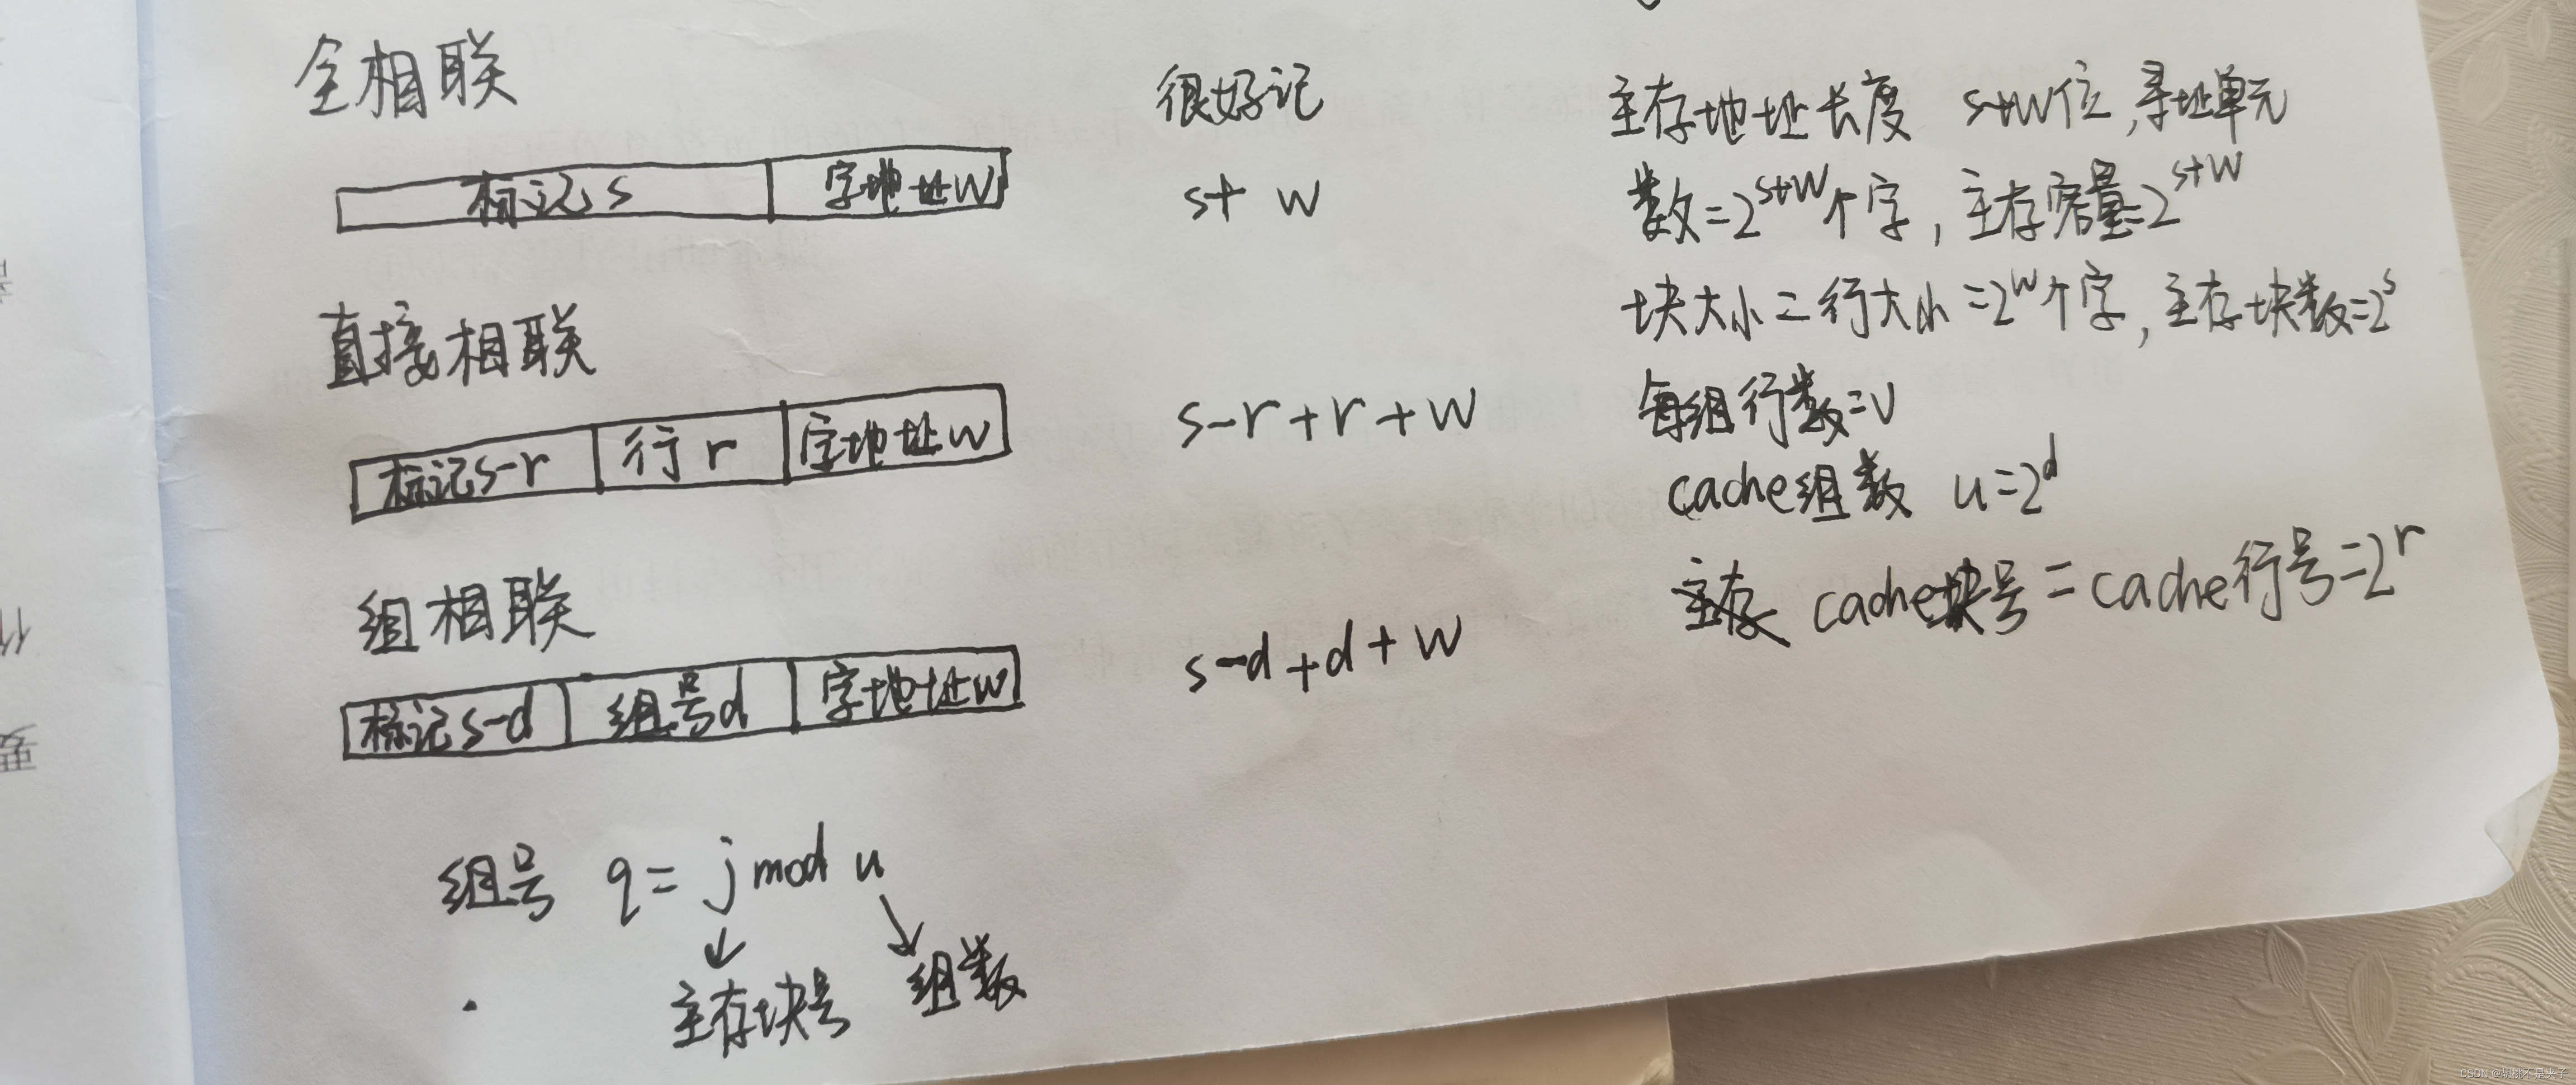 全相联
标记s 字地址w
直接相联
标记s-r 行r 字地址w
组相联
标记s-d 组号d 字地址w
组号 q= j mod u
主存块号 组数
很好记
s+ w
s-r+r+w
s-d+d+w
主存地址长度 s+w位,寻址单元
数=2^s+w个字,主存容量=2^s+w
块大小=行大小=2^w个字,主存块数=2^s
每组行数=v
cache组数 u=2^d
cache块号=cache行号=2^r
要
CSDN @胡桃不是夹子